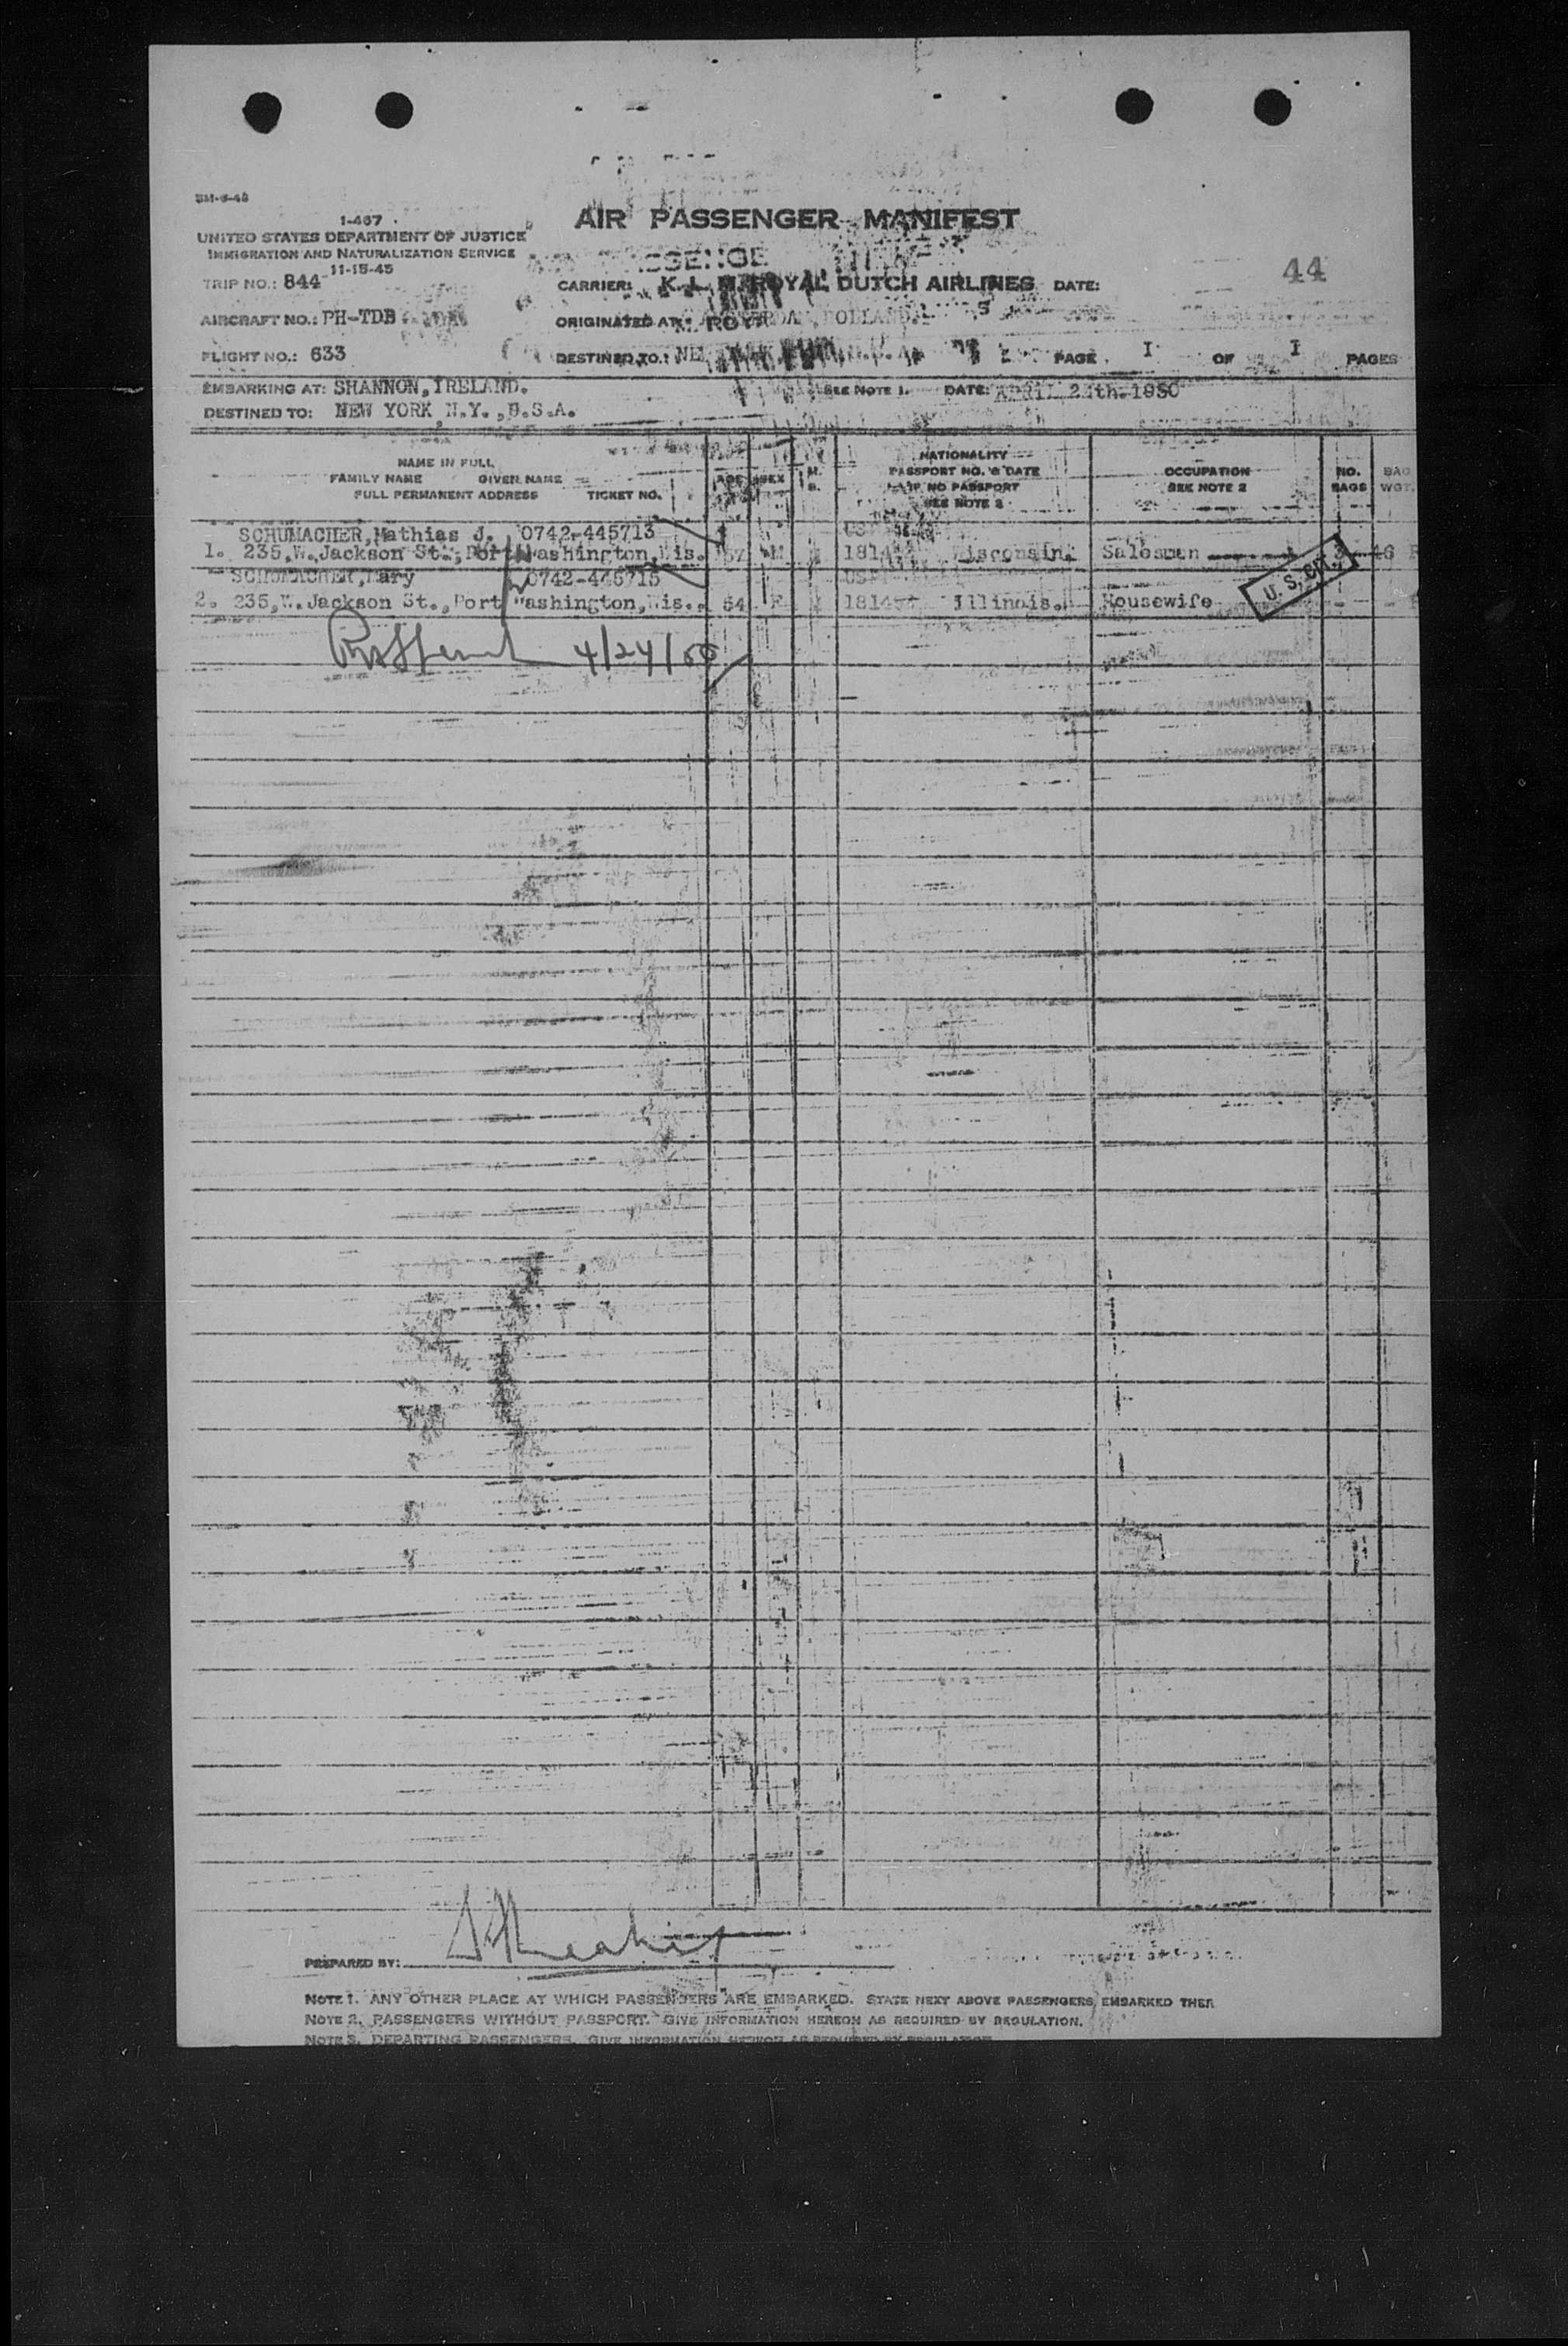 1-467
AIR PASSENGER MANIFEST
UNITED STATES DEPARTMENT OF JUSTICE
IMMIGRATION AND NATURALIZATION SERVICE
11-15-45
44
TRIP NO.: 844
CARRIER: K. L. M. ROYAL DUTCH AIRLINES DATE:
AIRCRAFT NO.: PH-TDB
ORIGINATED AT: HOLLAND.
FLIGHT NO.: 633
DESTINED TO.: PAGE I OF I PAGES
EMBARKING AT: SHANNON, IRELAND. SEE NOTE 1. DATE: APRIL 24th. 1950
DESTINED TO: NEW YORK N.Y.,U.S.A.
NAME IN FULL
FAMILY NAME GIVEN NAME
FULL PERMANENT ADDRESS TICKET NO.
AGE SEX
NATIONALITY
PASSPORT NO. & DATE
IF NO PASSPORT
SEE NOTE 2
OCCUPATION
SEE NOTE 2
NO.
BAGS
BAG
WGT.
SCHUMACHER,Mathias J. 0742-445713
1. 235,W.Jackson St., Port Washington,Wis. 57 M Wisconsin. Salesman 46
SCHUMACHER,Mary 0742-445715
2. 235,W.Jackson St.,Port Washington,Wis. 54 F Illinois. Housewife - -
U. S. CIT.
4/24/50
PREPARED BY:
NOTE 1. ANY OTHER PLACE AT WHICH PASSENGERS ARE EMBARKED. STATE NEXT ABOVE PASSENGERS EMBARKED THER
NOTE 2. PASSENGERS WITHOUT PASSPORT. GIVE INFORMATION HEREON AS REQUIRED BY REGULATION.
NOTE 3. DEPARTING PASSENGERS. GIVE INFORMATION HEREON AS REQUIRED BY REGULATION